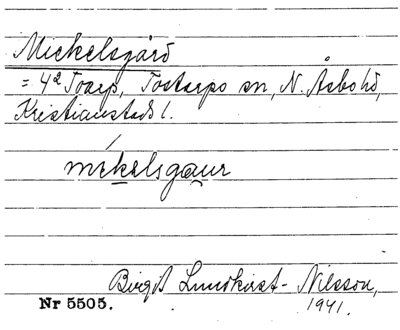 Mickelsgård
= 4ª Toarp, Tostarps sn, N. Åsbo hd,
Kristianstads l.
mékelsgaur
Birgit Lundkvist-Nilsson,
1941.
Nr 5505.